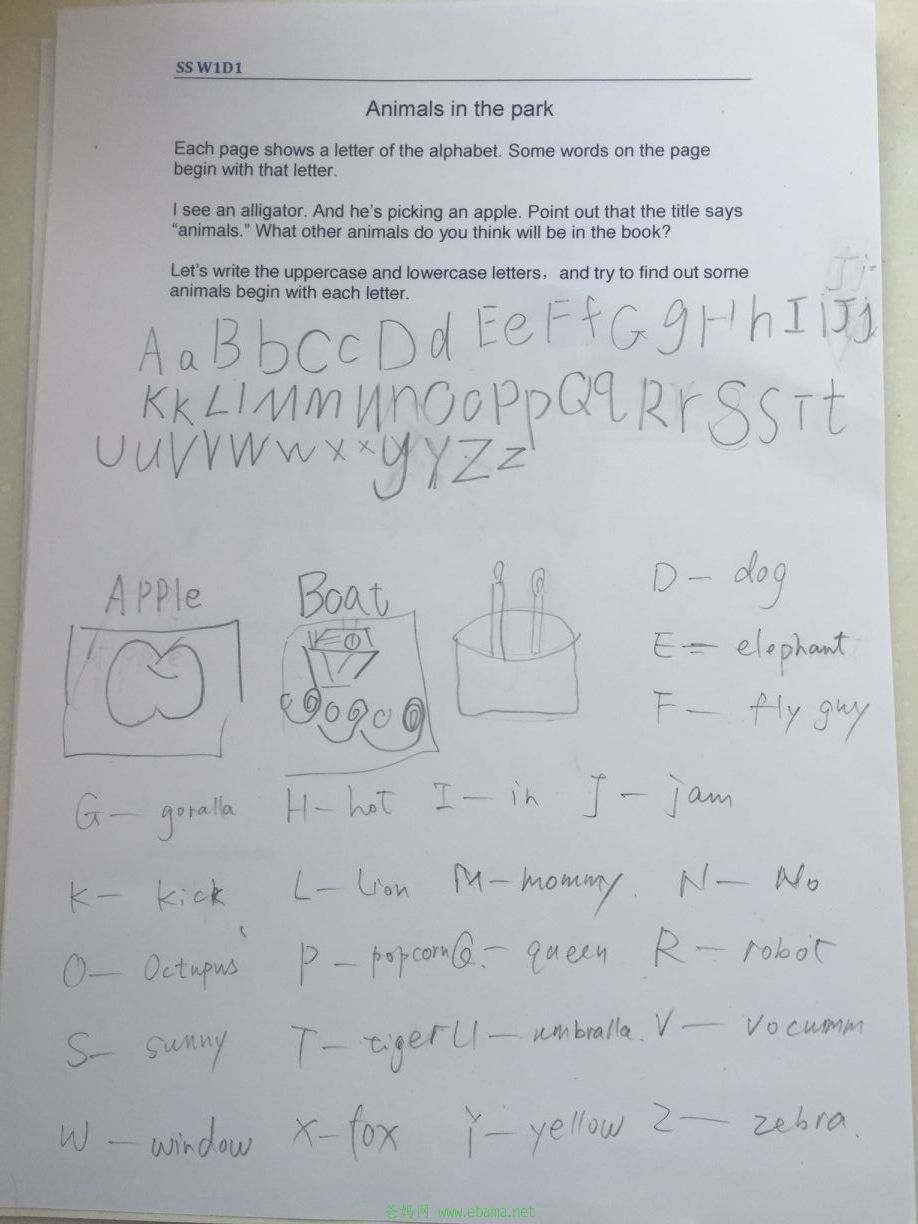 SS W1D1
Animals in the park
Each page shows a letter of the alphabet. Some words on the page
begin with that letter.
I see an alligator. And he's picking an apple. Point out that the title says
“animals.” What other animals do you think will be in the book?
Let's write the uppercase and lowercase letters, and try to find out some
animals begin with each letter.
Jj
A a B b C c D d E e F f G g H h I i J j
K k L l M m N n O o P p Q q R r S S T t
U u V V W w x x y Y Z z
APPle Boat
D - dog
E = elephant
F - fly guy
G - goralla H - hot I - in J - jam
K - kick L - lion M - mommy. N - No
O - Octupus P - popcorn Q - queen R - robot
S - sunny T - tiger U - umbralla. V - vocumm
W - window X - fox Y - yellow Z - zebra.
爸妈网 www.ebama.net